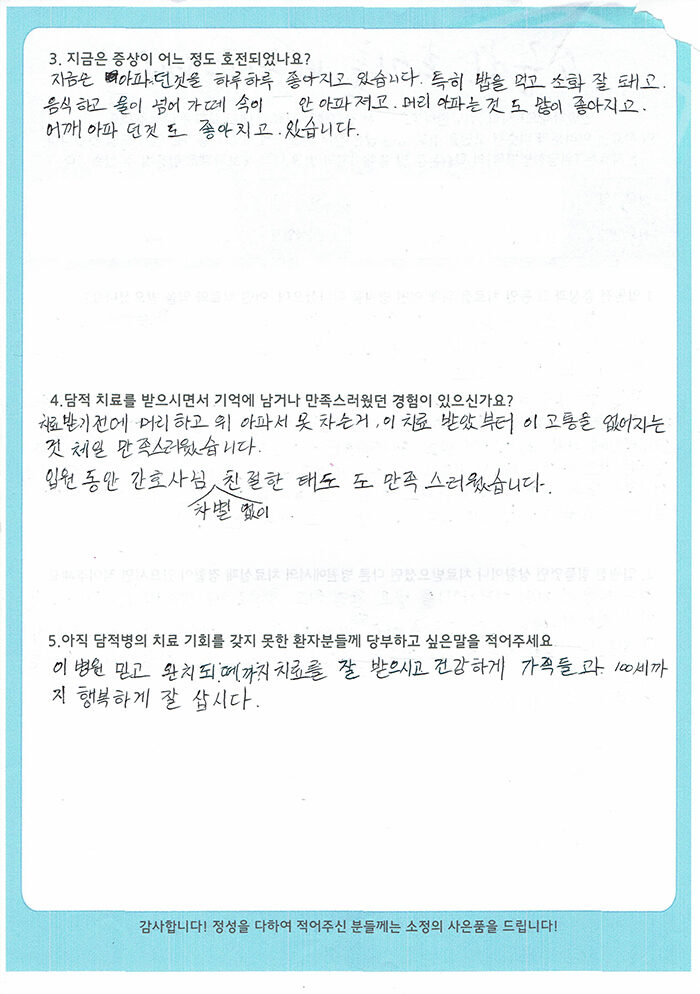 3. 지금은 증상이 어느 정도 호전되었나요?
지금은 아파던것을 하루하루 좋아지고 있습니다. 특히 밥을 먹고 소화 잘 돼고.
음식하고 물이 넘어가떼 속이 안 아파져고. 머리 아파는것 도 많이 좋아지고.
어깨 아파 던것 도 좋아지고. 있습니다.
4.담적 치료를 받으시면서 기억에 남거나 만족스러웠던 경험이 있으신가요?
치료받기전에 머리하고 위 아파서 못 차는거, 이 치료 받았부터 이 고통을 없어지는
것 체일 만족스러웠습니다.
입원 동안 간호사님 친절한 태도 도 만족 스러웠습니다.
차별 없이
5.아직 담적병의 치료 기회를 갖지 못한 환자분들께 당부하고 싶은말을 적어주세요
이 병원 믿고 완치되떼까지 치료를 잘 받으시고 건강하게 가족들 과 100세까
지 행복하게 잘 삽시다.
감사합니다! 정성을 다하여 적어주신 분들께는 소정의 사은품을 드립니다!